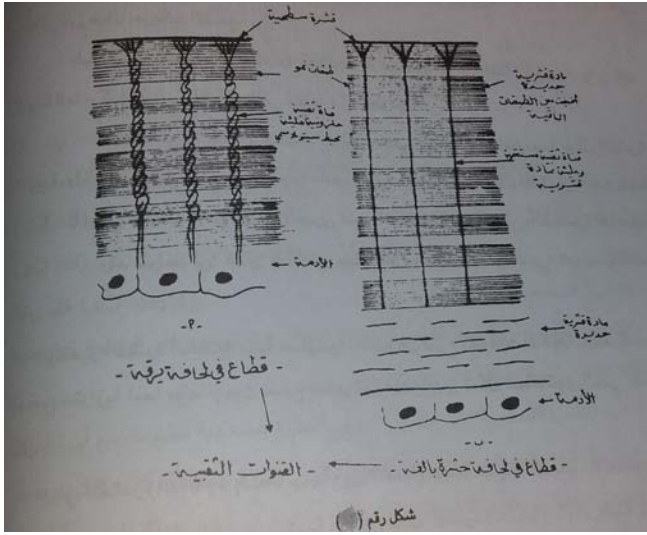 قشرة سطحية
طبقات نمو
قناة ثقبية
حلزونية مملوءة
بخيط سيتوبلازمي
الأدمة
-٢-
- قطاع في لحافة يرقة -
مادة قشرية
جديدة
من الطبقات
الباقية
قناة ثقبية مستقيمة
مادة
قشرية
مادة قشرية
جديدة
الأدمة
-ب-
- قطاع في لحافة حشرة بالغة -
- القنوات الثقبية -
شكل رقم ( )